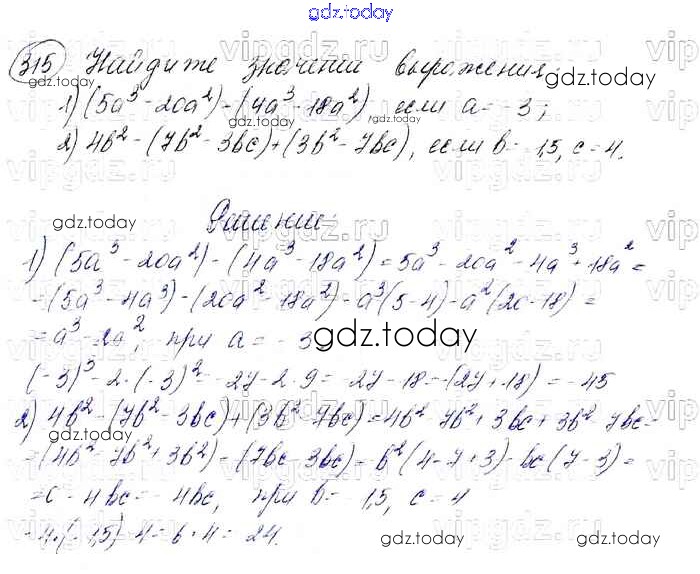 gdz.today
315 Найдите значении выражения:
1) (5a³ - 20a²) - (4a³ - 18a²) если a = -3;
2) 4b² - (7b² - 3bc) + (3b² - 7bc), если b = -1,5, c = 4.
Решении:
1) (5a³ - 20a²) - (4a³ - 18a²) = 5a³ - 20a² - 4a³ + 18a² =
= (5a³ - 4a³) - (20a² - 18a²) = a³(5-4) - a²(20-18) =
= a³ - 2a², при a = -3
(-3)³ - 2·(-3)² = -27 - 2·9 = -27 - 18 = -(27+18) = -45
2) 4b² - (7b² - 3bc) + (3b² - 7bc) = 4b² - 7b² + 3bc + 3b² - 7bc =
= (4b² - 7b² + 3b²) - (7bc - 3bc) = b²(4-7+3) - bc(7-3) =
= 0 - 4bc = -4bc, при b = -1,5, c = 4
-4·(-1,5)·4 = 6·4 = 24.